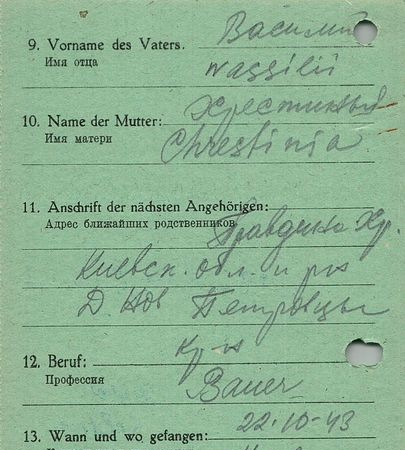 9. Vorname des Vaters. Васили
Имя отца Wassilii
10. Name der Mutter:
Имя матери Chrestinia
11. Anschrift der nächsten Angehörigen:
Адрес ближайших родственников Правденко Хр.
Киевск. обл. и рн
Д. Нов Петровцы
12. Beruf: кр-н
Профессия Bauer
13. Wann und wo gefangen: 22-10-43